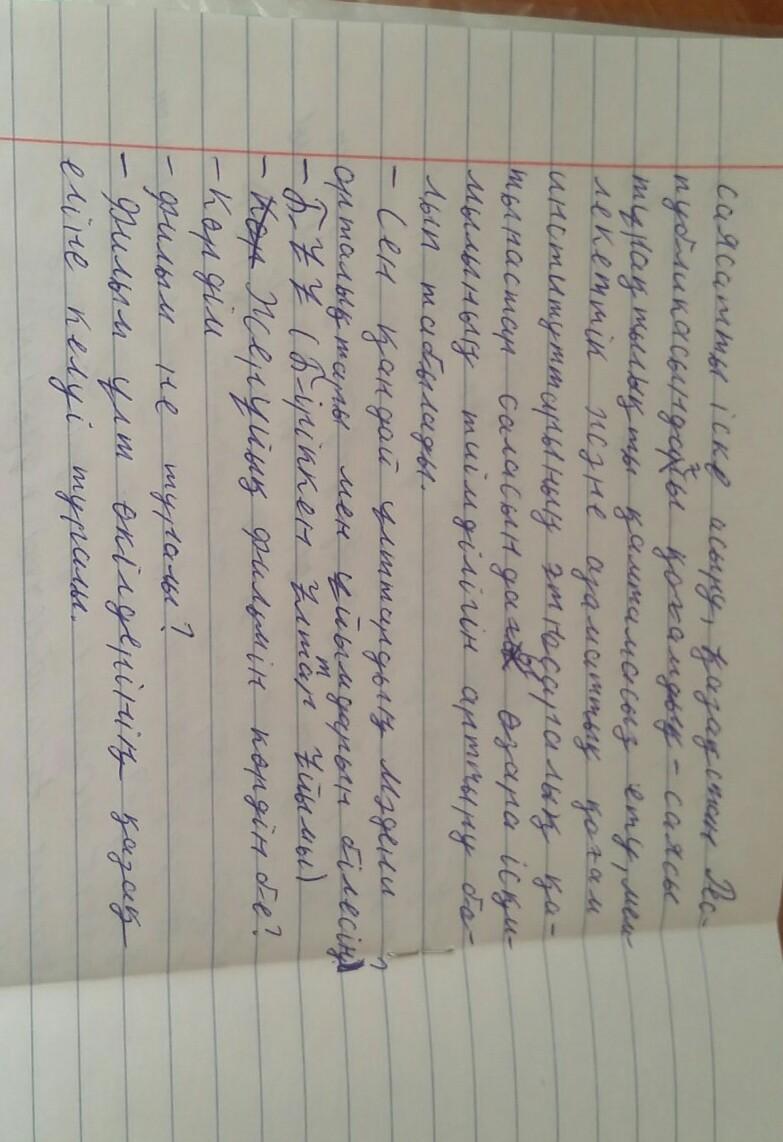 саясатты іске асыру, Қазақстан Рес-
публикасындағы қоғамдық-саяси
тұрақтылықты қамтамасыз ету, мем-
лекеттік және азаматтық қоғам
институттарының этносаралық қа-
тынастар саласындағы өзара ісқи-
мылының тиімділігін арттыру бо-
лып табылады.
- Сен қандай ұлттардың мәдени
орталықтары мен ұйымдарын білесің?
- БҰҰ (Біріккен Ұлттар Ұйымы)
- Жерұйық фильмін көрдің бе?
- Көрдім
- Фильм не туралы?
- Фильм ұлт өкілдерінің қазақ
еліне келуі туралы.